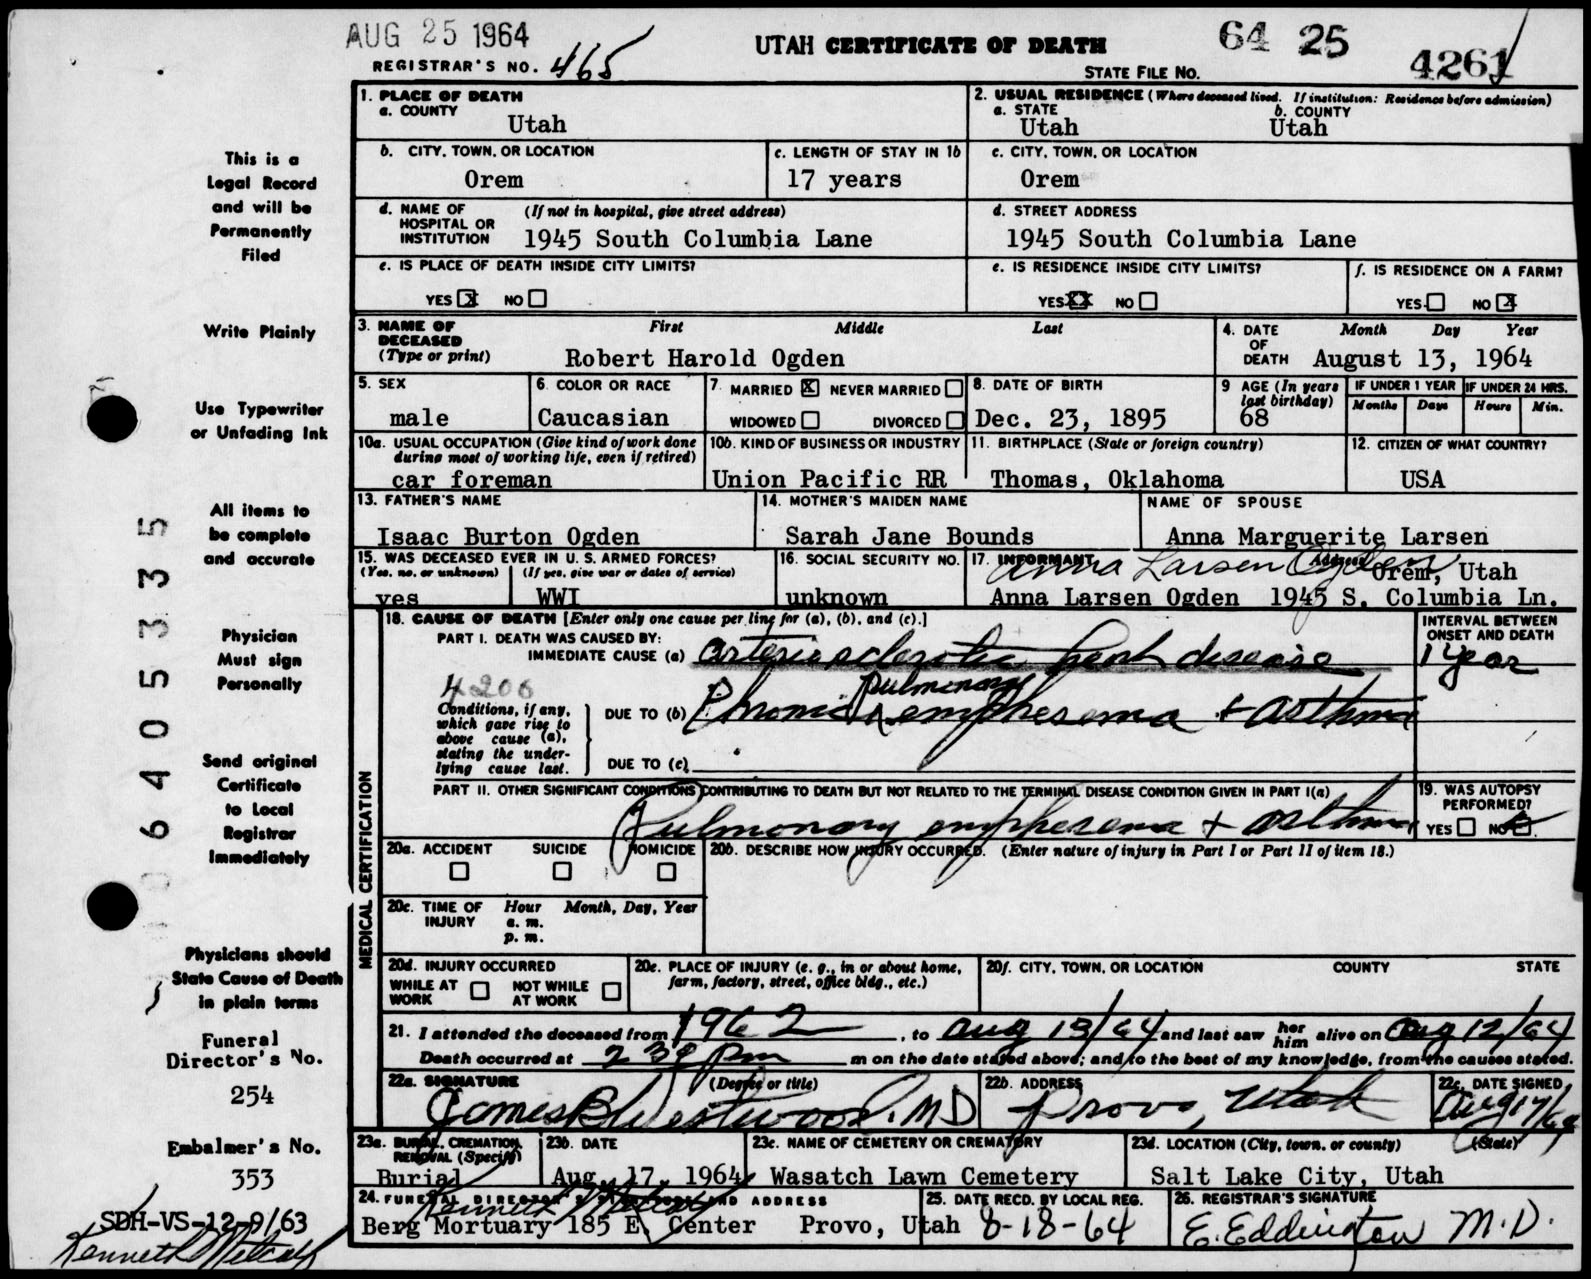 AUG 25 1964
UTAH CERTIFICATE OF DEATH
64 25 4261
REGISTRAR'S NO. 465
STATE FILE NO.
This is a
Legal Record
and will be
Permanently
Filed
Write Plainly
Use Typewriter
or Unfading Ink
All items to
be complete
and accurate
Physician
Must sign
Personally
Send original
Certificate
to Local
Registrar
Immediately
Physicians should
State Cause of Death
in plain terms
Funeral
Director's No.
254
Embalmer's No.
353
SDH-VS-12-9/63
Kenneth Metcalf
0 6 4 0 5 3 3 5
1. PLACE OF DEATH
a. COUNTY
Utah
2. USUAL RESIDENCE (Where deceased lived. If institution: Residence before admission)
a. STATE b. COUNTY
Utah Utah
b. CITY, TOWN, OR LOCATION
Orem
c. LENGTH OF STAY IN 1b
17 years
c. CITY, TOWN, OR LOCATION
Orem
d. NAME OF HOSPITAL OR INSTITUTION (If not in hospital, give street address)
1945 South Columbia Lane
d. STREET ADDRESS
1945 South Columbia Lane
e. IS PLACE OF DEATH INSIDE CITY LIMITS?
YES X NO
e. IS RESIDENCE INSIDE CITY LIMITS?
YES XX NO
f. IS RESIDENCE ON A FARM?
YES NO X
3. NAME OF DECEASED (Type or print)
First Middle Last
Robert Harold Ogden
4. DATE OF DEATH Month Day Year
August 13, 1964
5. SEX
male
6. COLOR OR RACE
Caucasian
7. MARRIED X NEVER MARRIED
WIDOWED DIVORCED
8. DATE OF BIRTH
Dec. 23, 1895
9 AGE (In years last birthday)
68
IF UNDER 1 YEAR
Months Days
IF UNDER 24 HRS.
Hours Min.
10a. USUAL OCCUPATION (Give kind of work done during most of working life, even if retired)
car foreman
10b. KIND OF BUSINESS OR INDUSTRY
Union Pacific RR
11. BIRTHPLACE (State or foreign country)
Thomas, Oklahoma
12. CITIZEN OF WHAT COUNTRY?
USA
13. FATHER'S NAME
Isaac Burton Ogden
14. MOTHER'S MAIDEN NAME
Sarah Jane Bounds
NAME OF SPOUSE
Anna Marguerite Larsen
15. WAS DECEASED EVER IN U. S. ARMED FORCES?
(Yes, no, or unknown) (If yes, give war or dates of service)
yes WWI
16. SOCIAL SECURITY NO.
unknown
17. INFORMANT Address
Anna Larsen Ogden
Orem, Utah
Anna Larsen Ogden 1945 S. Columbia Ln.
MEDICAL CERTIFICATION
18. CAUSE OF DEATH [Enter only one cause per line for (a), (b), and (c).]
INTERVAL BETWEEN ONSET AND DEATH
PART I. DEATH WAS CAUSED BY:
IMMEDIATE CAUSE (a) arteriosclerotic heart disease 1 year
4200
Conditions, if any, which gave rise to above cause (a), stating the underlying cause last.
DUE TO (b) Chronic pulmonary emphesema + asthma
DUE TO (c)
PART II. OTHER SIGNIFICANT CONDITIONS CONTRIBUTING TO DEATH BUT NOT RELATED TO THE TERMINAL DISEASE CONDITION GIVEN IN PART I(a)
Pulmonary emphesema + asthma
19. WAS AUTOPSY PERFORMED?
YES NO
20a. ACCIDENT SUICIDE HOMICIDE
20b. DESCRIBE HOW INJURY OCCURRED. (Enter nature of injury in Part I or Part II of item 18.)
20c. TIME OF INJURY Hour Month, Day, Year
a. m.
p. m.
20d. INJURY OCCURRED
WHILE AT WORK NOT WHILE AT WORK
20e. PLACE OF INJURY (e. g., in or about home, farm, factory, street, office bldg., etc.)
20f. CITY, TOWN, OR LOCATION COUNTY STATE
21. I attended the deceased from 1962, to Aug 13/64 and last saw her him alive on Aug 12/64
Death occurred at 2 30 pm m on the date stated above; and to the best of my knowledge, from the causes stated.
22a. SIGNATURE (Degree or title)
James B Westwood. MD
22b. ADDRESS
Provo, Utah
22c. DATE SIGNED
Aug 17/64
23a. BURIAL, CREMATION, REMOVAL (Specify)
Burial
23b. DATE
Aug. 17, 1964
23c. NAME OF CEMETERY OR CREMATORY
Wasatch Lawn Cemetery
23d. LOCATION (City, town, or county) (State)
Salt Lake City, Utah
24. FUNERAL DIRECTOR'S SIGNATURE AND ADDRESS
Kenneth Metcalf
Berg Mortuary 185 E. Center Provo, Utah
25. DATE RECD. BY LOCAL REG.
8-18-64
26. REGISTRAR'S SIGNATURE
E. Eddington M.D.